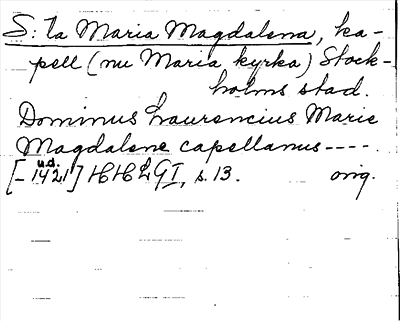 S:ta Maria Magdalena, ka-
pell (nu Maria kyrka) Stock-
holms stad.
Dominus Laurencius Marie
Magdalene capellanus ----
u.d.
[-1421] HH
I, s. 13. orig.